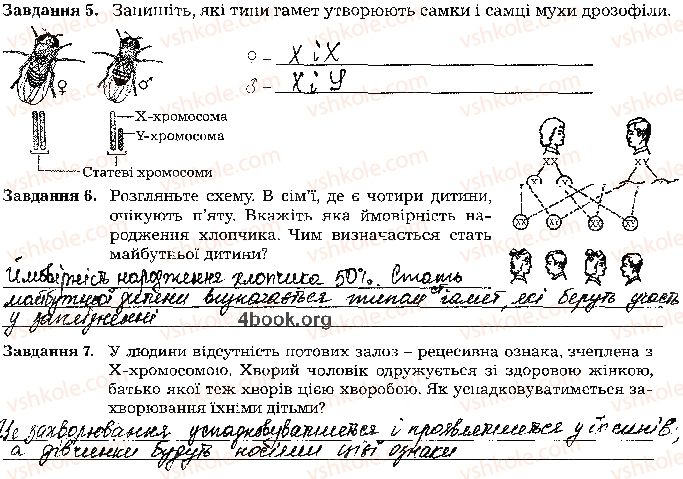 Завдання 5. Запишіть, які типи гамет утворюють самки і самці мухи дрозофіли.
♀ – X і X
♂ – X і Y
♀ ♂
X-хромосома
Y-хромосома
Статеві хромосоми
XX XY
Завдання 6. Розгляньте схему. В сім'ї, де є чотири дитини,
очікують п'яту. Вкажіть яка ймовірність на-
родження хлопчика. Чим визначається стать
майбутньої дитини?
Ймовірність народження хлопчика 50%. Стать
майбутньої дитини визначається типом гамет, які беруть участь
у заплідненні
4book.org
Завдання 7. У людини відсутність потових залоз – рецесивна ознака, зчеплена з
X-хромосомою. Хворий чоловік одружується зі здоровою жінкою,
батько якої теж хворів цією хворобою. Як успадковуватиметься за-
хворювання їхніми дітьми?
Це захворювання успадковуватиметься і проявлятиметься у їх синів;
а дівчинки будуть носіями цієї ознаки
vshkole.com